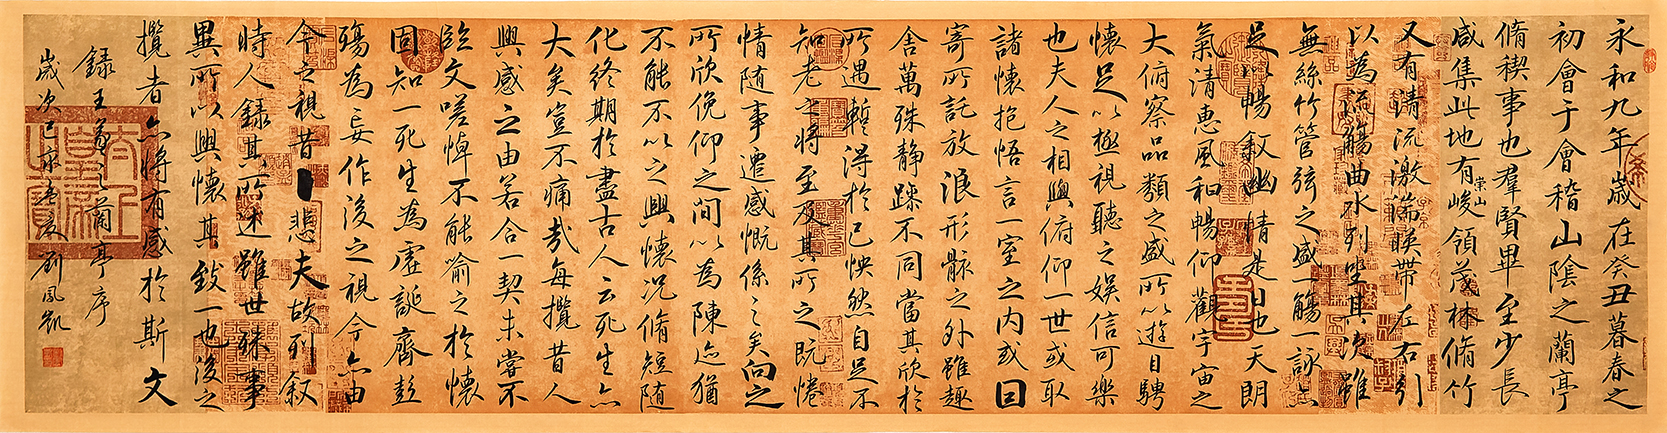 永和九年歲在癸丑暮春之
初會于會稽山陰之蘭亭
脩稧事也羣賢畢至少長
咸集此地有崇山峻領茂林脩竹
又有清流激湍暎帶左右引
以為流觴曲水列坐其次雖
無絲竹管弦之盛一觴一詠亦
足以暢敘幽情是日也天朗
氣清惠風和暢仰觀宇宙之
大俯察品類之盛所以遊目騁
懷足以極視聽之娛信可樂
也夫人之相與俯仰一世或取
諸懷抱悟言一室之内或因
寄所託放浪形骸之外雖趣
舍萬殊静躁不同當其欣於
所遇蹔得於己怏然自足不
知老之將至及其所之既惓
情随事遷感慨係之矣向之
所欣俛仰之間以為陳迹猶
不能不以之興懷況脩短随
化終期於盡古人云死生亦
大矣豈不痛哉每攬昔人
興感之由若合一契未嘗不
臨文嗟悼不能喻之於懷
固知一死生為虛誕齊彭
殤為妄作後之視今亦由
今之視昔悲夫故列敘
時人錄其所述雖世殊事
異所以興懷其致一也後之
攬者亦將有感於斯文
錄王羲之蘭亭序
歲次己亥孟夏劉鳳凱